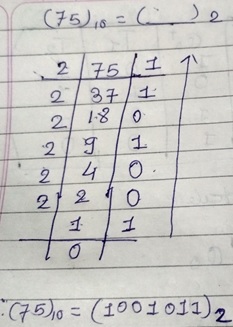 (75)₁₀ = (___)₂
2 75 1
2 37 1
2 18 0
2 9 1
2 4 0
2 2 0
1 1
0
(75)₁₀ = (1001011)₂